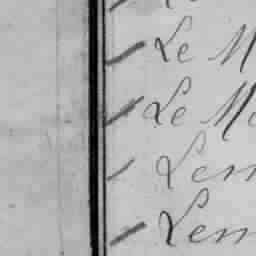 Le M
Le Mo
Lem
Lem